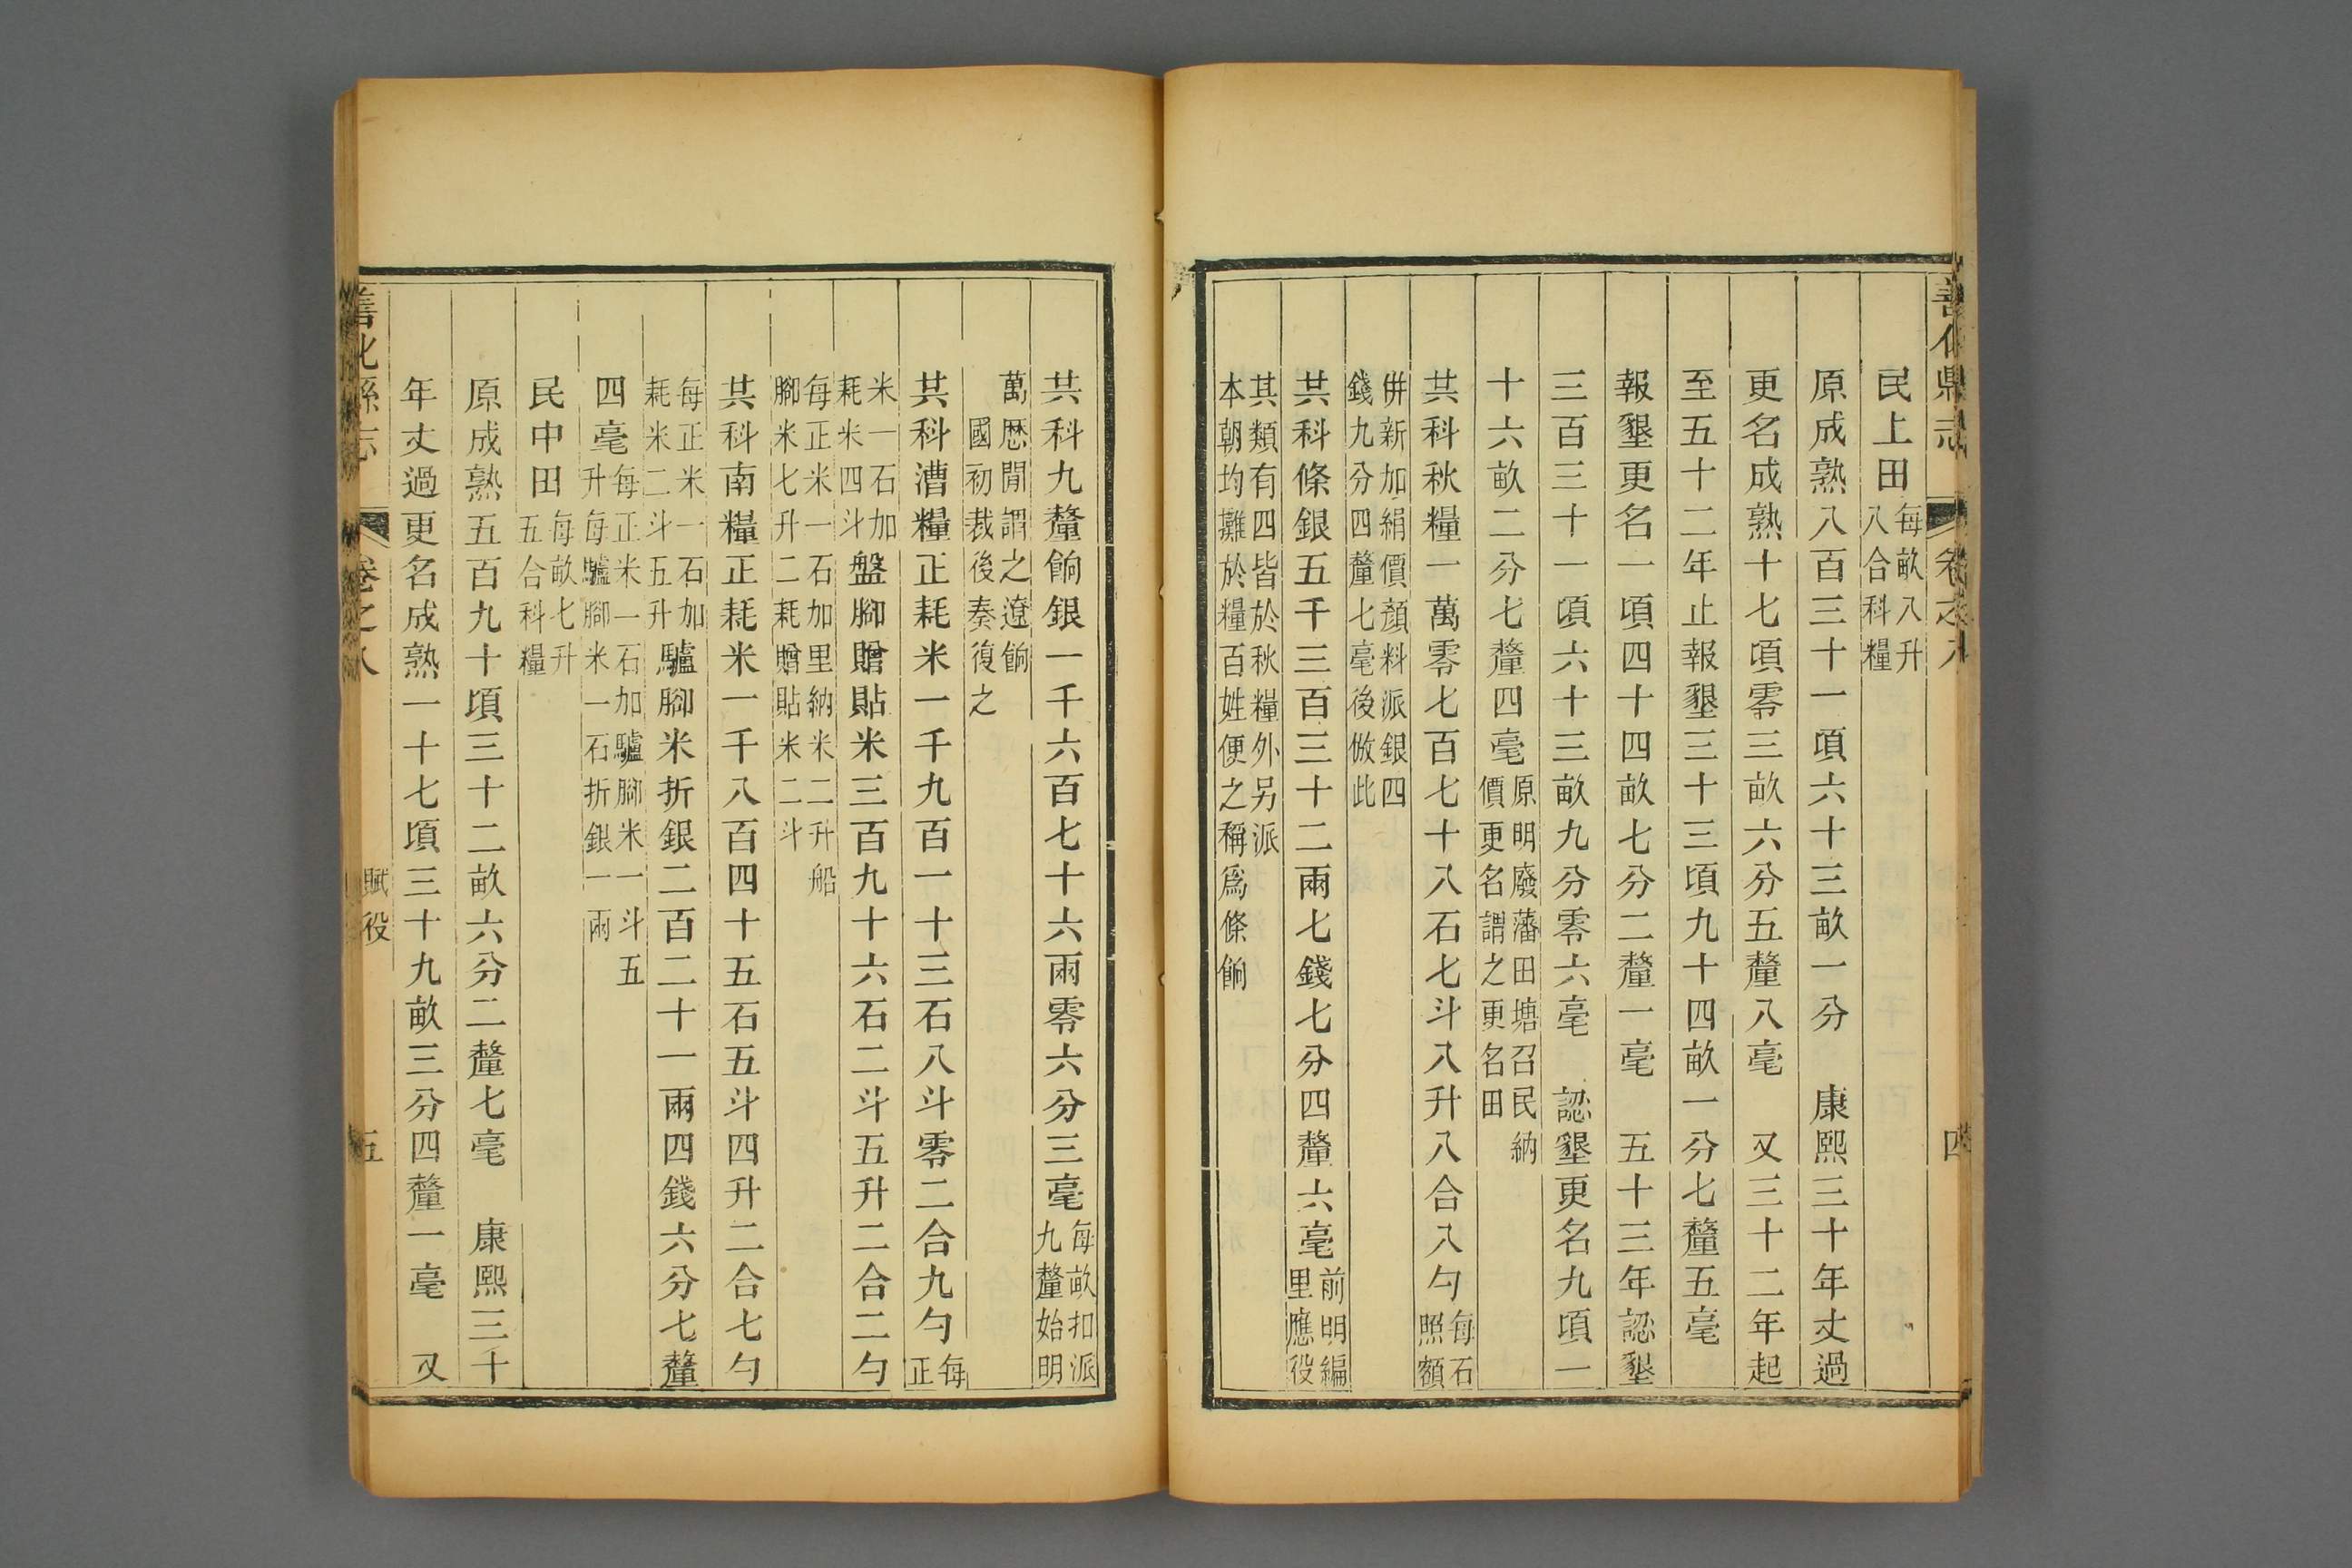 善化縣志 卷之八 四
民上田每畝八升
八合科糧
原成熟八百三十一項六十三畝一分 康熙三十年丈過
更名成熟十七項零三畝六分五釐八毫 又三十二年起
至五十二年止報墾三十三頃九十四畝一分七釐五毫
報墾更名一頃四十四畝七分二釐一毫 五十三年認墾
三百三十一頃六十三畝九分零六毫 認墾更名九項一
十六畝二分七釐四毫原明廢藩田塘召民納
價更名謂之更名田
共科秋糧一萬零七百七十八石七斗八升八合八勺每石
照額
併新加絹價顏料派銀四
錢九分四釐七毫後倣此
共科條銀五千三百三十二兩七錢七分四釐六毫前明編
里應役
其類有四皆於秋糧外另派
本朝均攤於糧百姓便之稱爲條餉
共科九釐餉銀一千六百七十六兩零六分三毫每畝扣派
九釐始明
萬厯閒謂之遼餉
國初裁後奏復之
共科漕糧正耗米一千九百一十三石八斗零二合九勺每
正
米一石加
耗米四斗盤腳贈貼米三百九十六石二斗五升二合二勺
每正米一石加里納米二升船
腳米七升二耗贈貼米二斗
共科南糧正耗米一千八百四十五石五斗四升二合七勺
每正米一石加
耗米二斗五升驢腳米折銀二百二十一兩四錢六分七釐
四毫每正米一石加驢腳米一斗五
升每驢腳米一石折銀一兩
民中田每畝七升
五合科糧
原成熟五百九十頃三十二畝六分二釐七毫 康熙三十
年丈過更名成熟一十七頃三十九畝三分四釐一毫 又
善化縣志 卷之八 賦役 五